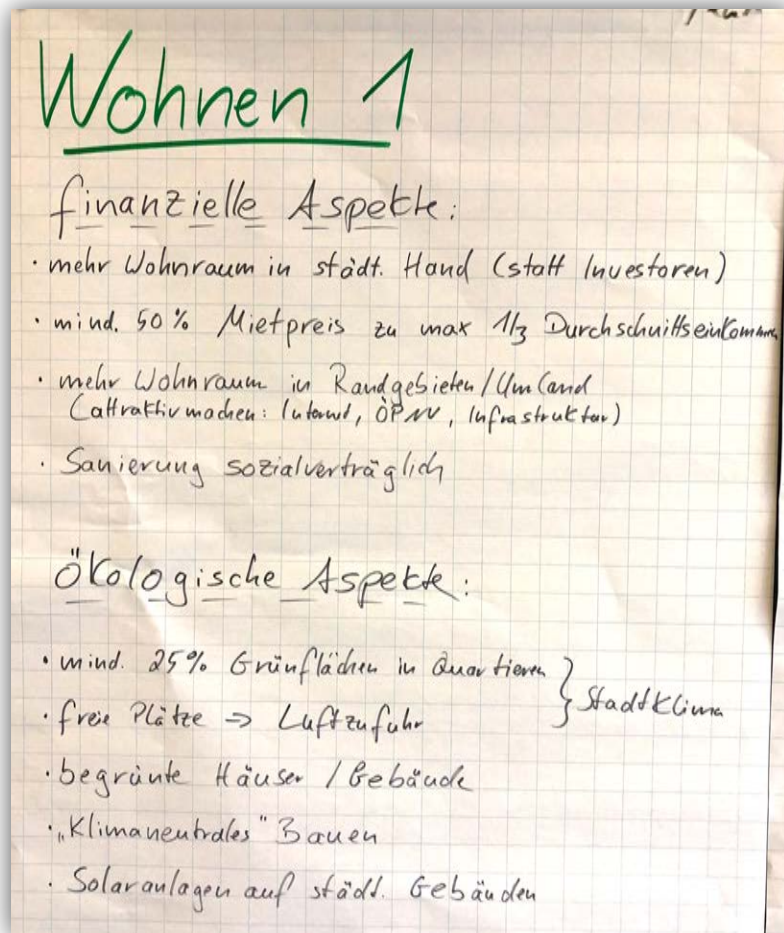 Wohnen 1
finanzielle Aspekte:
· mehr Wohnraum in städt. Hand (statt Investoren)
· mind. 50% Mietpreis zu max 1/3 Durchschnittseinkommen
· mehr Wohnraum in Randgebieten/Umland
(attraktiv machen: Internet, ÖPNV, Infrastruktur)
· Sanierung sozialverträglich
Ökologische Aspekte:
· mind. 25% Grünflächen in Quartieren } Stadtklima
· freie Plätze => Luftzufuhr
· begrünte Häuser / Gebäude
· „Klimaneutrales" Bauen
· Solaranlagen auf städt. Gebäuden